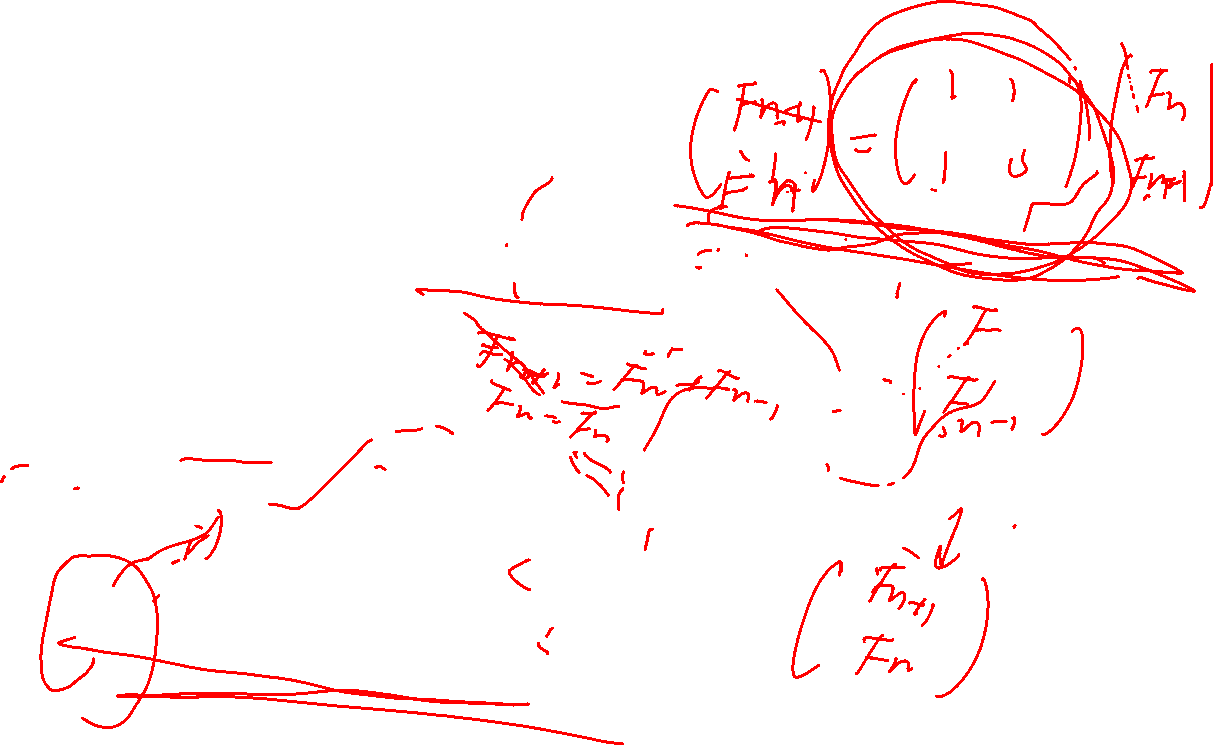 ( F_{n+1} ) = ( 1 1 ) ( F_n )
( F_n ) ( 1 0 ) ( F_{n-1} )
F_{n+1} = F_n + F_{n-1}
F_n = F_n
( F
F_{n-1} )
( F_{n+1}
F_n )